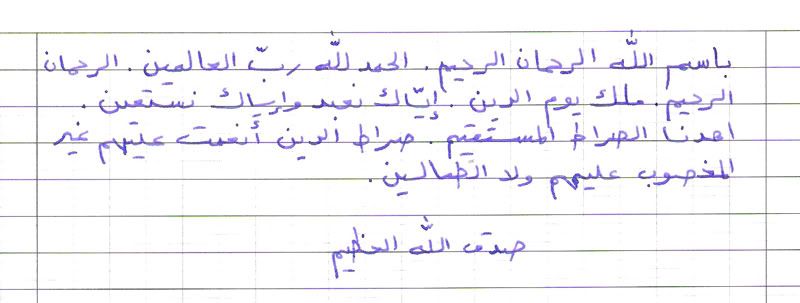 باسم الله الرحمان الرحيم. الحمد لله ربّ العالمين. الرحمان
الرحيم. ملك يوم الدين. إيّاك نعبد وإياك نستعين.
اهدنا الصراط المستقيم. صراط الذين أنعمت عليهم غير
المغضوب عليهم ولا الضالين.
صدق الله العظيم